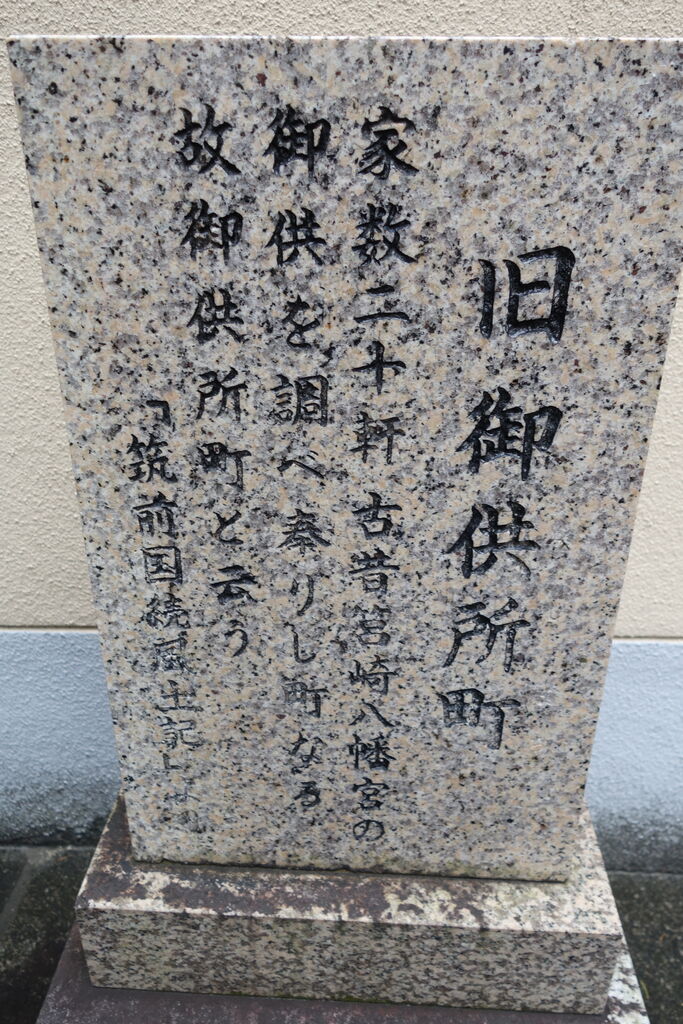 旧御供所町
家数二十軒 古昔筥崎八幡宮の
御供を調べ奉りし町なる
故御供所町と云う
「筑前国続風土記」より